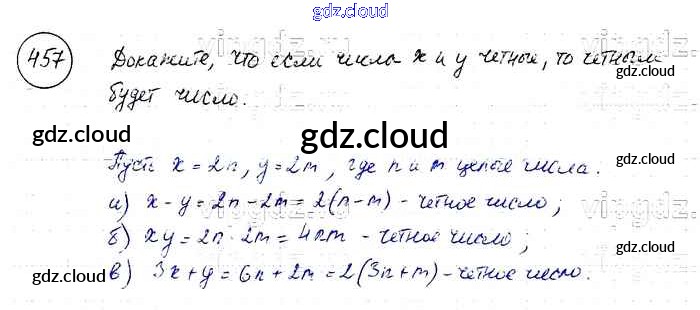 gdz.cloud
457 Докажите, что если числа x и y четные, то четным
gdz.cloud
будет число.
gdz.cloud
gdz.cloud
gdz.cloud
Пусть x = 2n, y = 2m, где n и m целые числа.
а) x - y = 2n - 2m = 2(n - m) - четное число;
б) xy = 2n · 2m = 4nm - четное число;
gdz.cloud
gdz.cloud
в) 3x + y = 6n + 2m = 2(3n + m) - четное число.